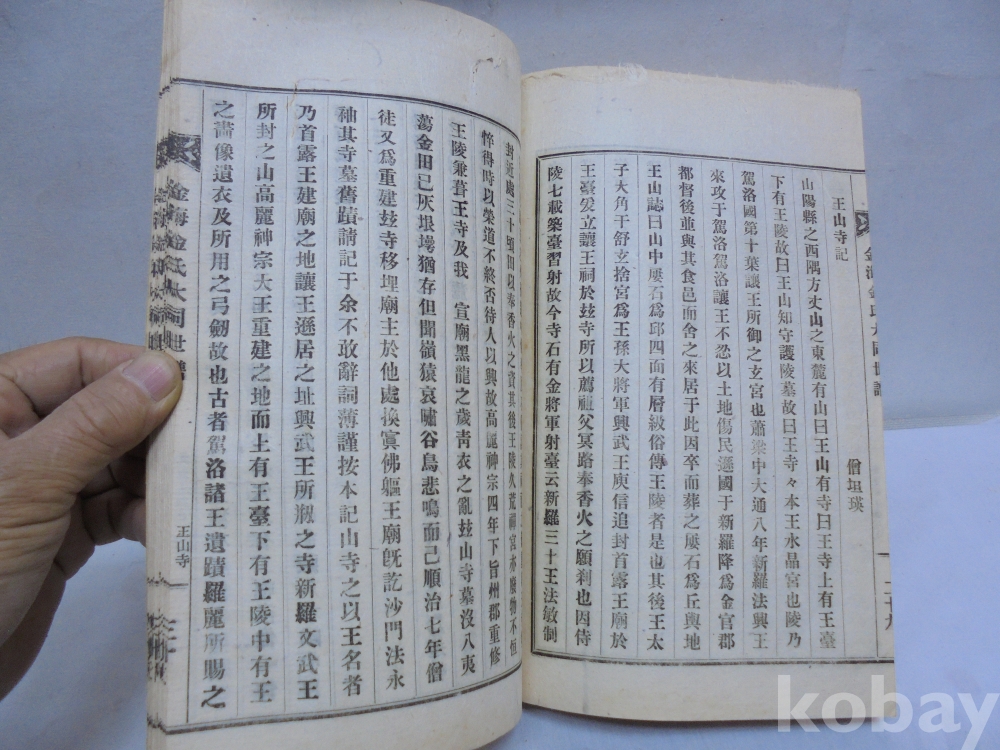 王山寺記
僧坦瑛
山陽縣之西隅方丈山之東麓有山曰王山有寺曰王寺上有王臺
下有王陵故曰王山知守護陵墓故曰王寺々本王水晶宮也陵乃
駕洛國第十葉讓王所御之玄宮也蕭梁中大通八年新羅法興王
來攻于駕洛駕洛讓王不忍以土地傷民遜國于新羅降爲金官郡
都督後並與其食邑而舍之來居于此因卒而葬之屢石爲丘輿地
王山誌曰山中屢石爲邱四面有層級俗傳王陵者是也其後王太
子大角干舒玄捨宮爲王孫大將軍興武王庾信追封首露王廟於
王臺爰立讓王祠於玆寺所以薦祖父冥路奉香火之願刹也因侍
陵七載築臺習射故今寺石有金將軍射臺云新羅三十王法敏制
封近處三十頃田以奉香火之資其後王陵久荒神宮亦廢物不恒
悴得時以榮道不終否待人以興故高麗神宗四年下旨州郡重修
王陵兼葺王寺及我 宣廟黑龍之歲靑衣之亂玆山寺墓沒八夷
蕩金田已灰垠場猶存但聞嶺猿哀嘯谷鳥悲鳴而己順治七年僧
徒又爲重建玆寺移埋廟主於他處換寘佛軀王廟旣訖沙門法永
袖其寺墓舊蹟請記于余不敢辭詞薄謹按本記山寺之以王名者
乃首露王建廟之地讓王遜居之址興武王所剏之寺新羅文武王
所封之山高麗神宗大王重建之地而上有王臺下有王陵中有王
之畵像遺衣及所用之弓劒故也古者駕洛諸王遺蹟羅麗所賜之
金海金氏大同世譜
王山寺
kobay